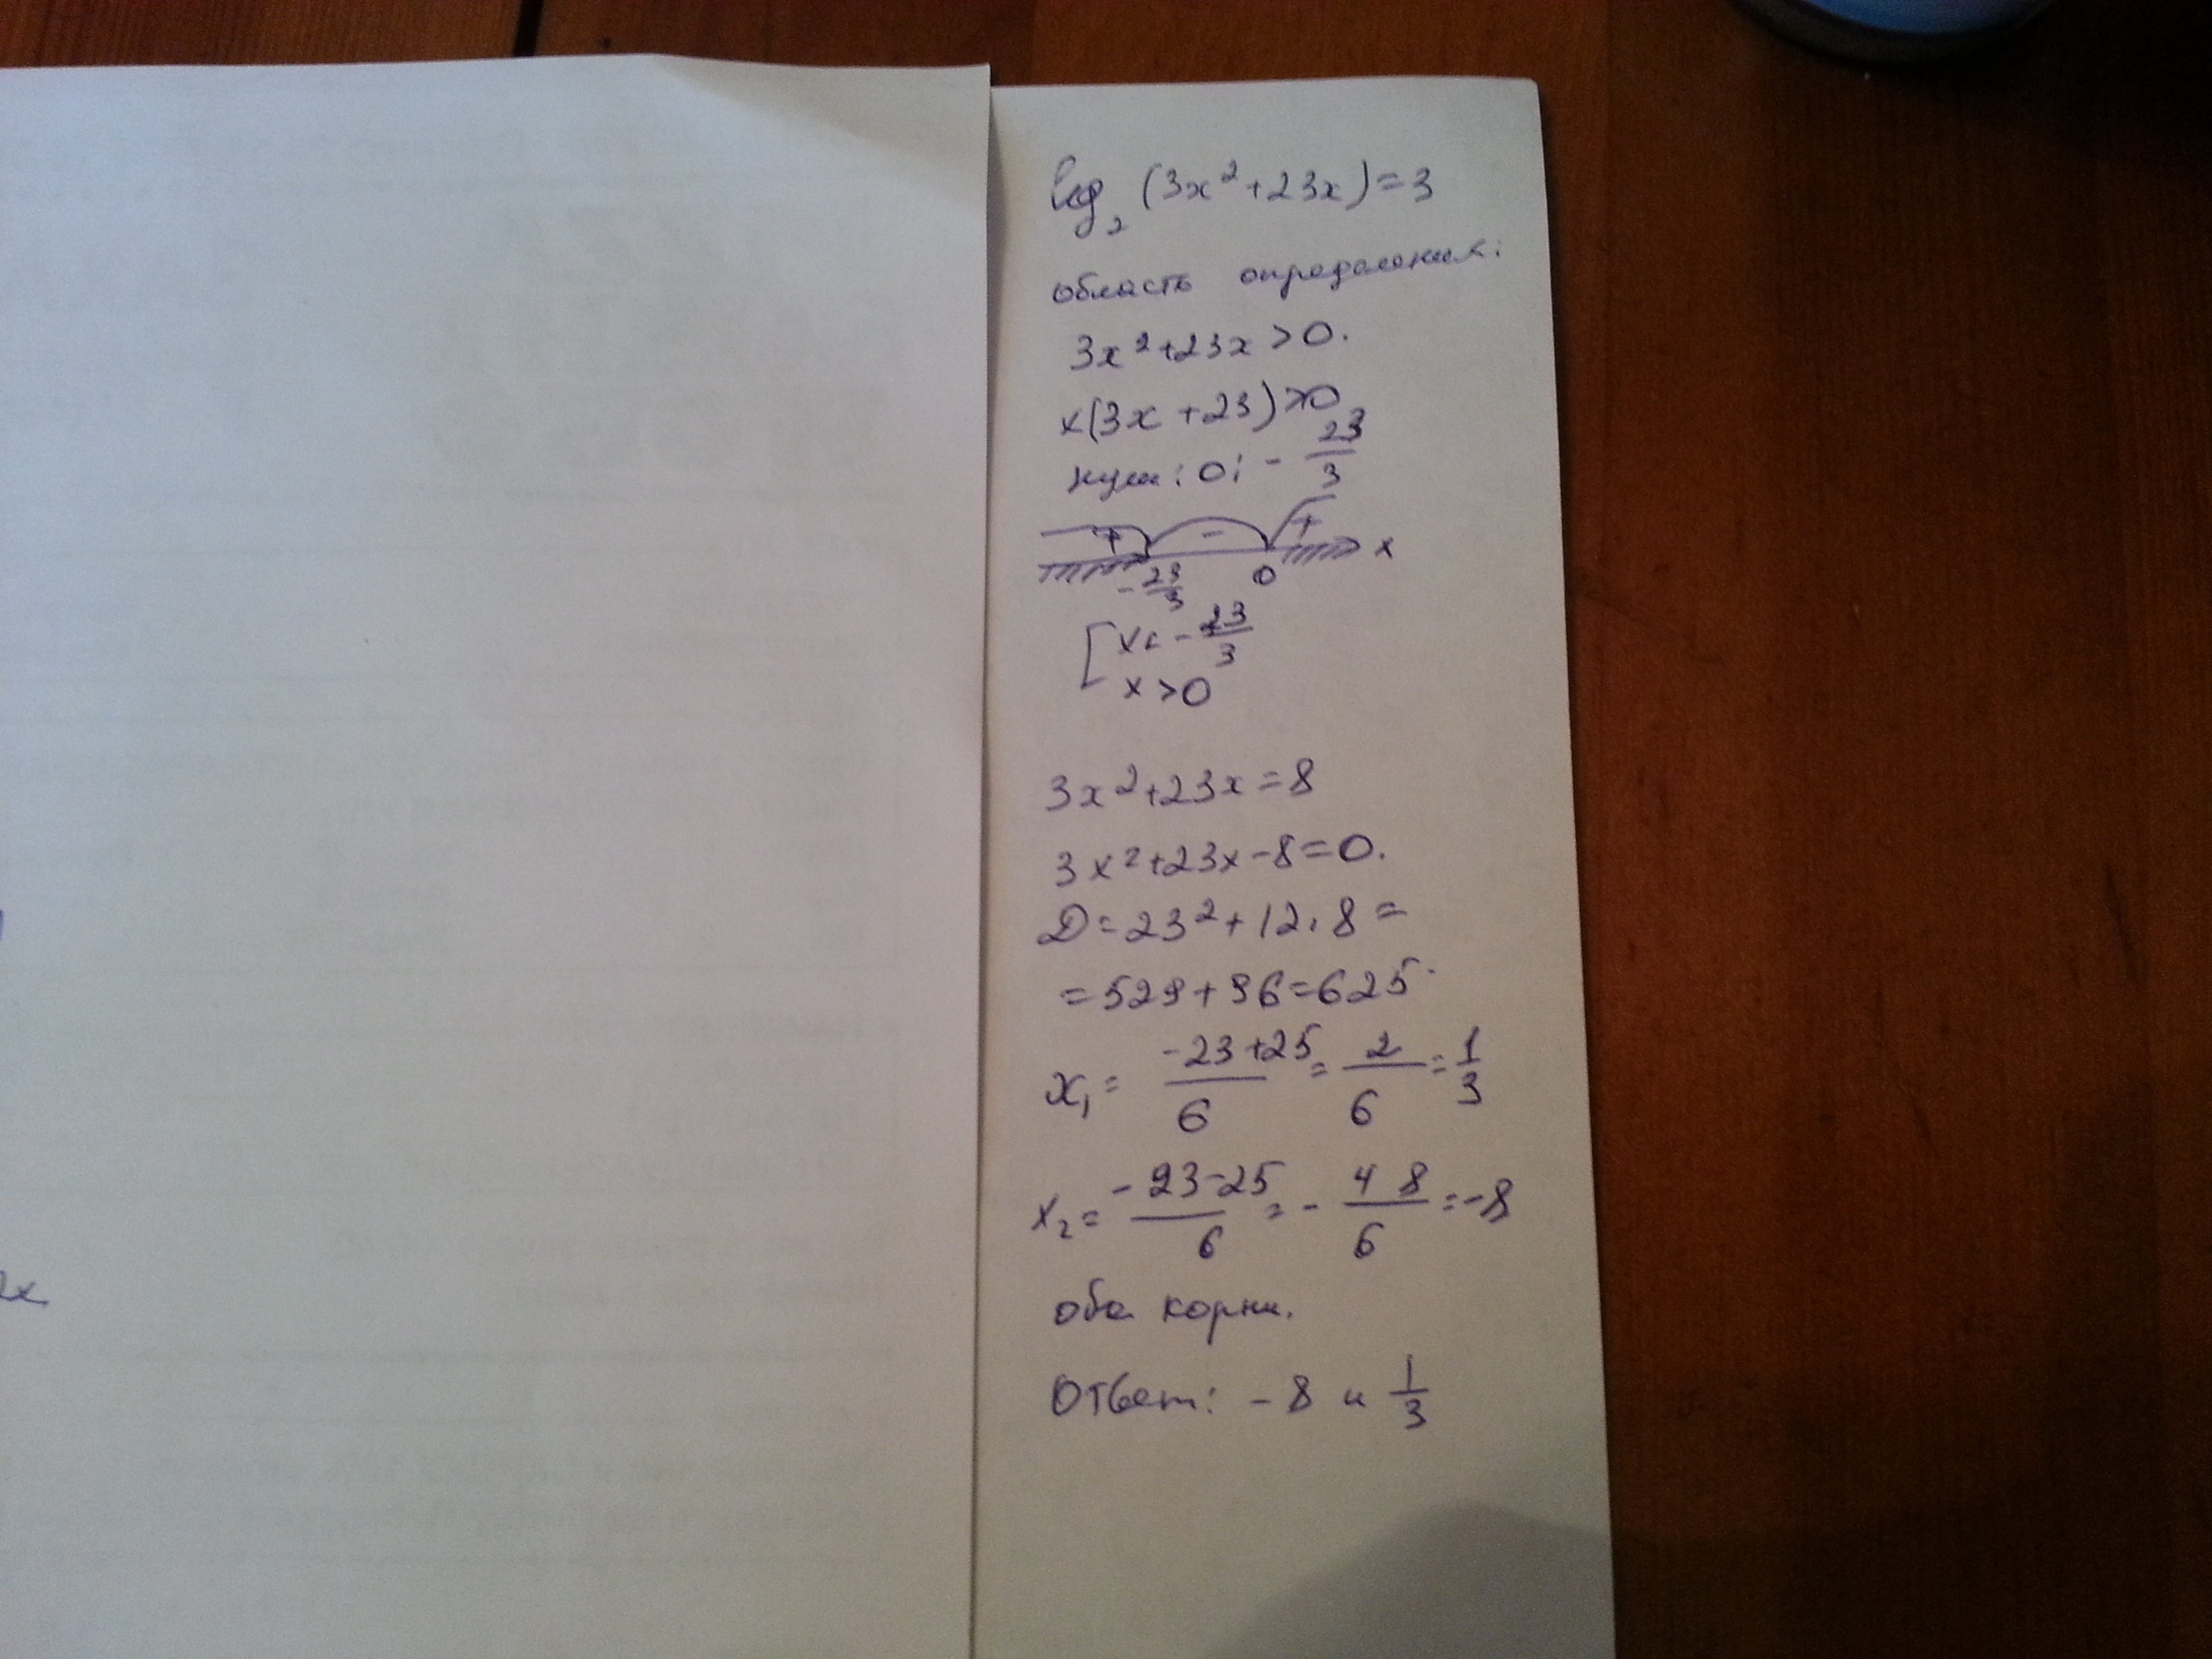 log₂ (3x²+23x)=3
область определения:
3x²+23x>0.
x(3x+23)>0
нули: 0; -23/3
+ - + x
-23/3 0
[ x< -23/3
x>0
3x²+23x=8
3x²+23x-8=0.
D=23²+12·8=
=529+96=625
x₁= (-23+25)/6 = 2/6 = 1/3
x₂= (-23-25)/6 = -48/6 = -8
оба корни.
Ответ: -8 и 1/3